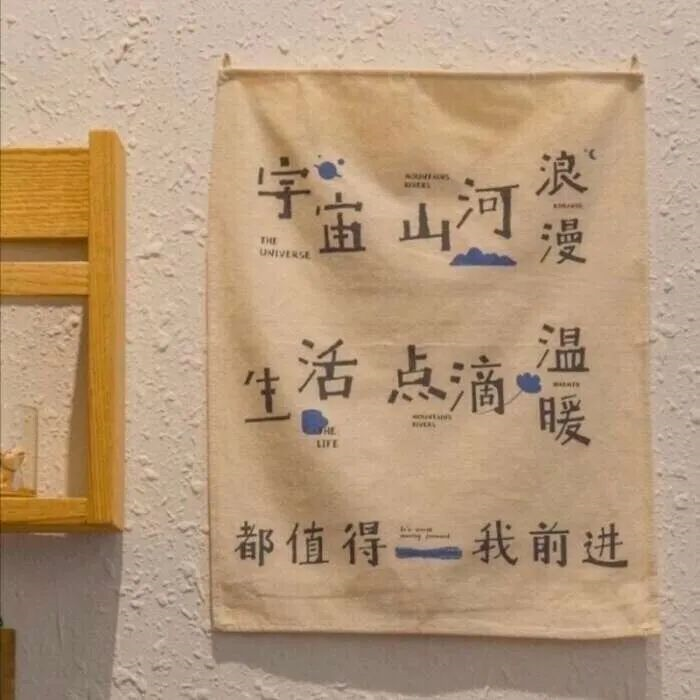 宇宙
THE
UNIVERSE
MOUNTAINS
RIVERS
山河
浪漫
ROMANCE
生活
THE
LIFE
点滴
MOUNTAINS
RIVERS
温暖
WARMTH
都值得
It's worth
moving forward
我前进